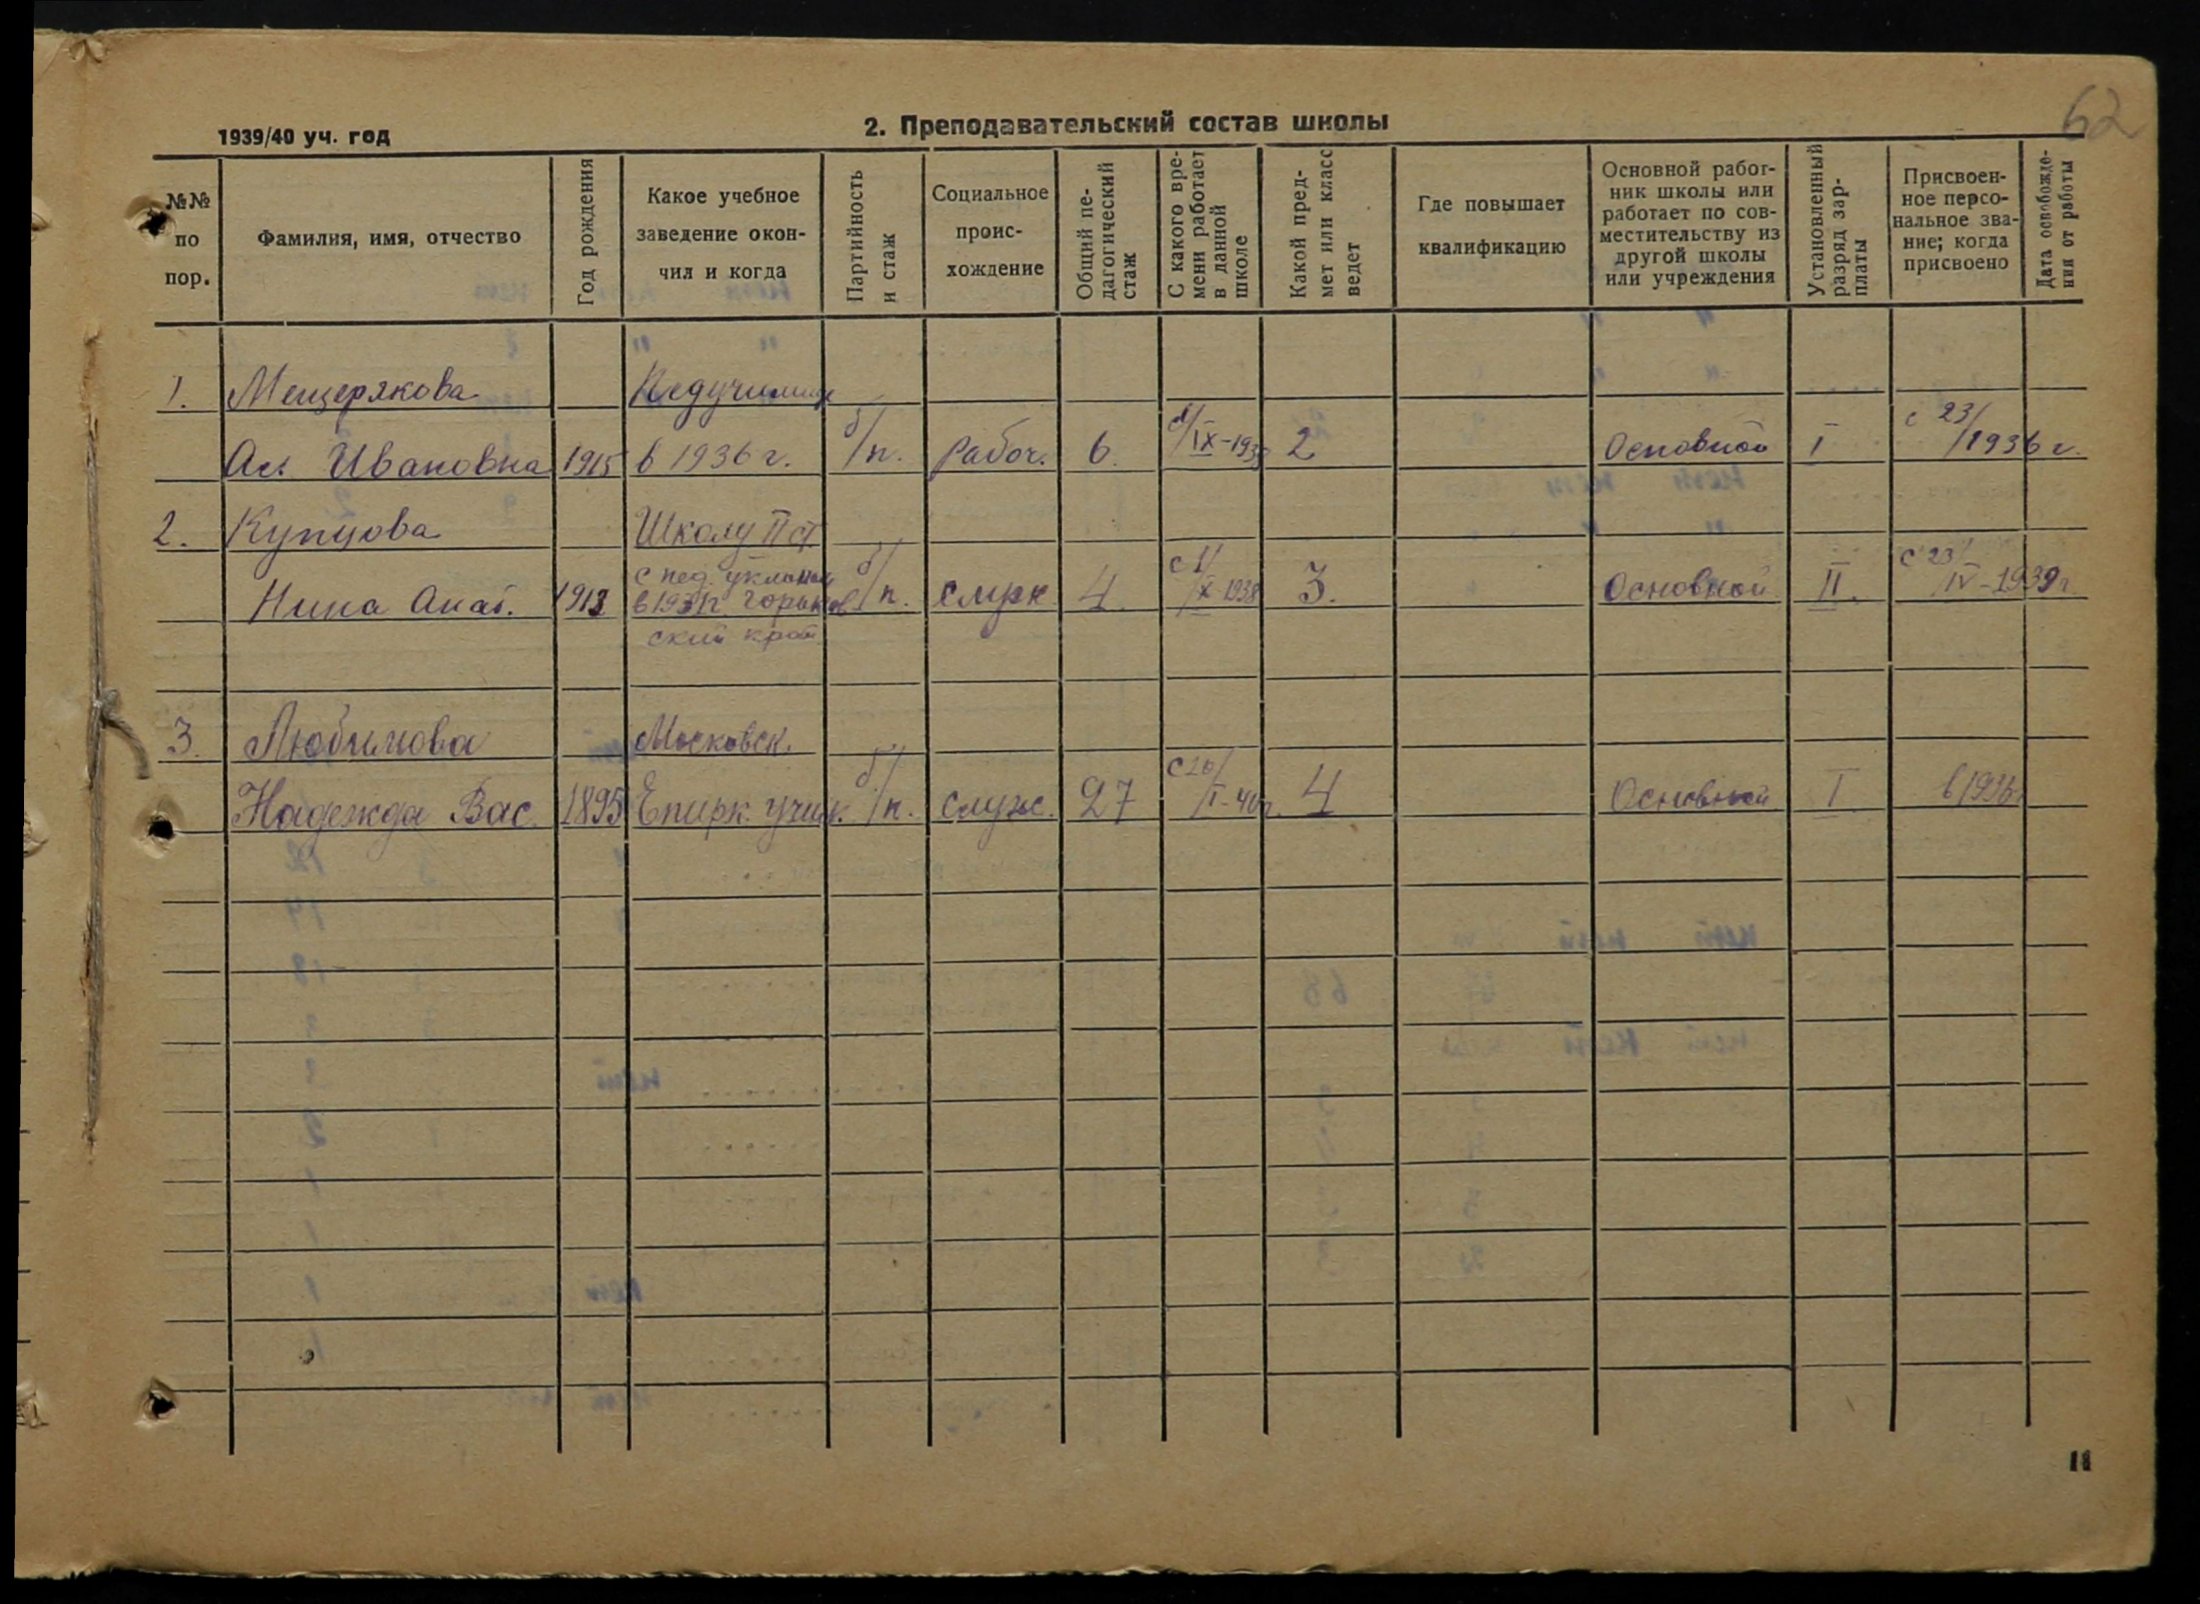 62
1939/40 уч. год
2. Преподавательский состав школы
№№ по пор.
Фамилия, имя, отчество
Год рождения
Какое учебное заведение окон-чил и когда
Партийность и стаж
Социальное проис-хождение
Общий пе-дагогический стаж
С какого вре-мени работает в данной школе
Какой пред-мет или класс ведет
Где повышает квалификацию
Основной работ-ник школы или работает по сов-местительству из другой школы или учреждения
Установленный разряд зар-платы
Присвоен-ное персо-нальное зва-ние; когда присвоено
Дата освобожде-ния от работы
1. Мещерякова
Ал. Ивановна 1915 в 1936 г. б/п. рабоч. 6. 2 Основной I с 23/ /1936 г.
2. Купцова Школу II ст.
с пед. уклоном
Нина Анат. 1913 б/п. служ 4. с 1/X-1938 3. Основной II. с 23/IV-1939 г
ский край
3. Любимова Московск.
Надежда Вас. 1895 Епарх. учил. б/п. служ. 27 с 20/I-40 г. 4 Основной I в 1936
11